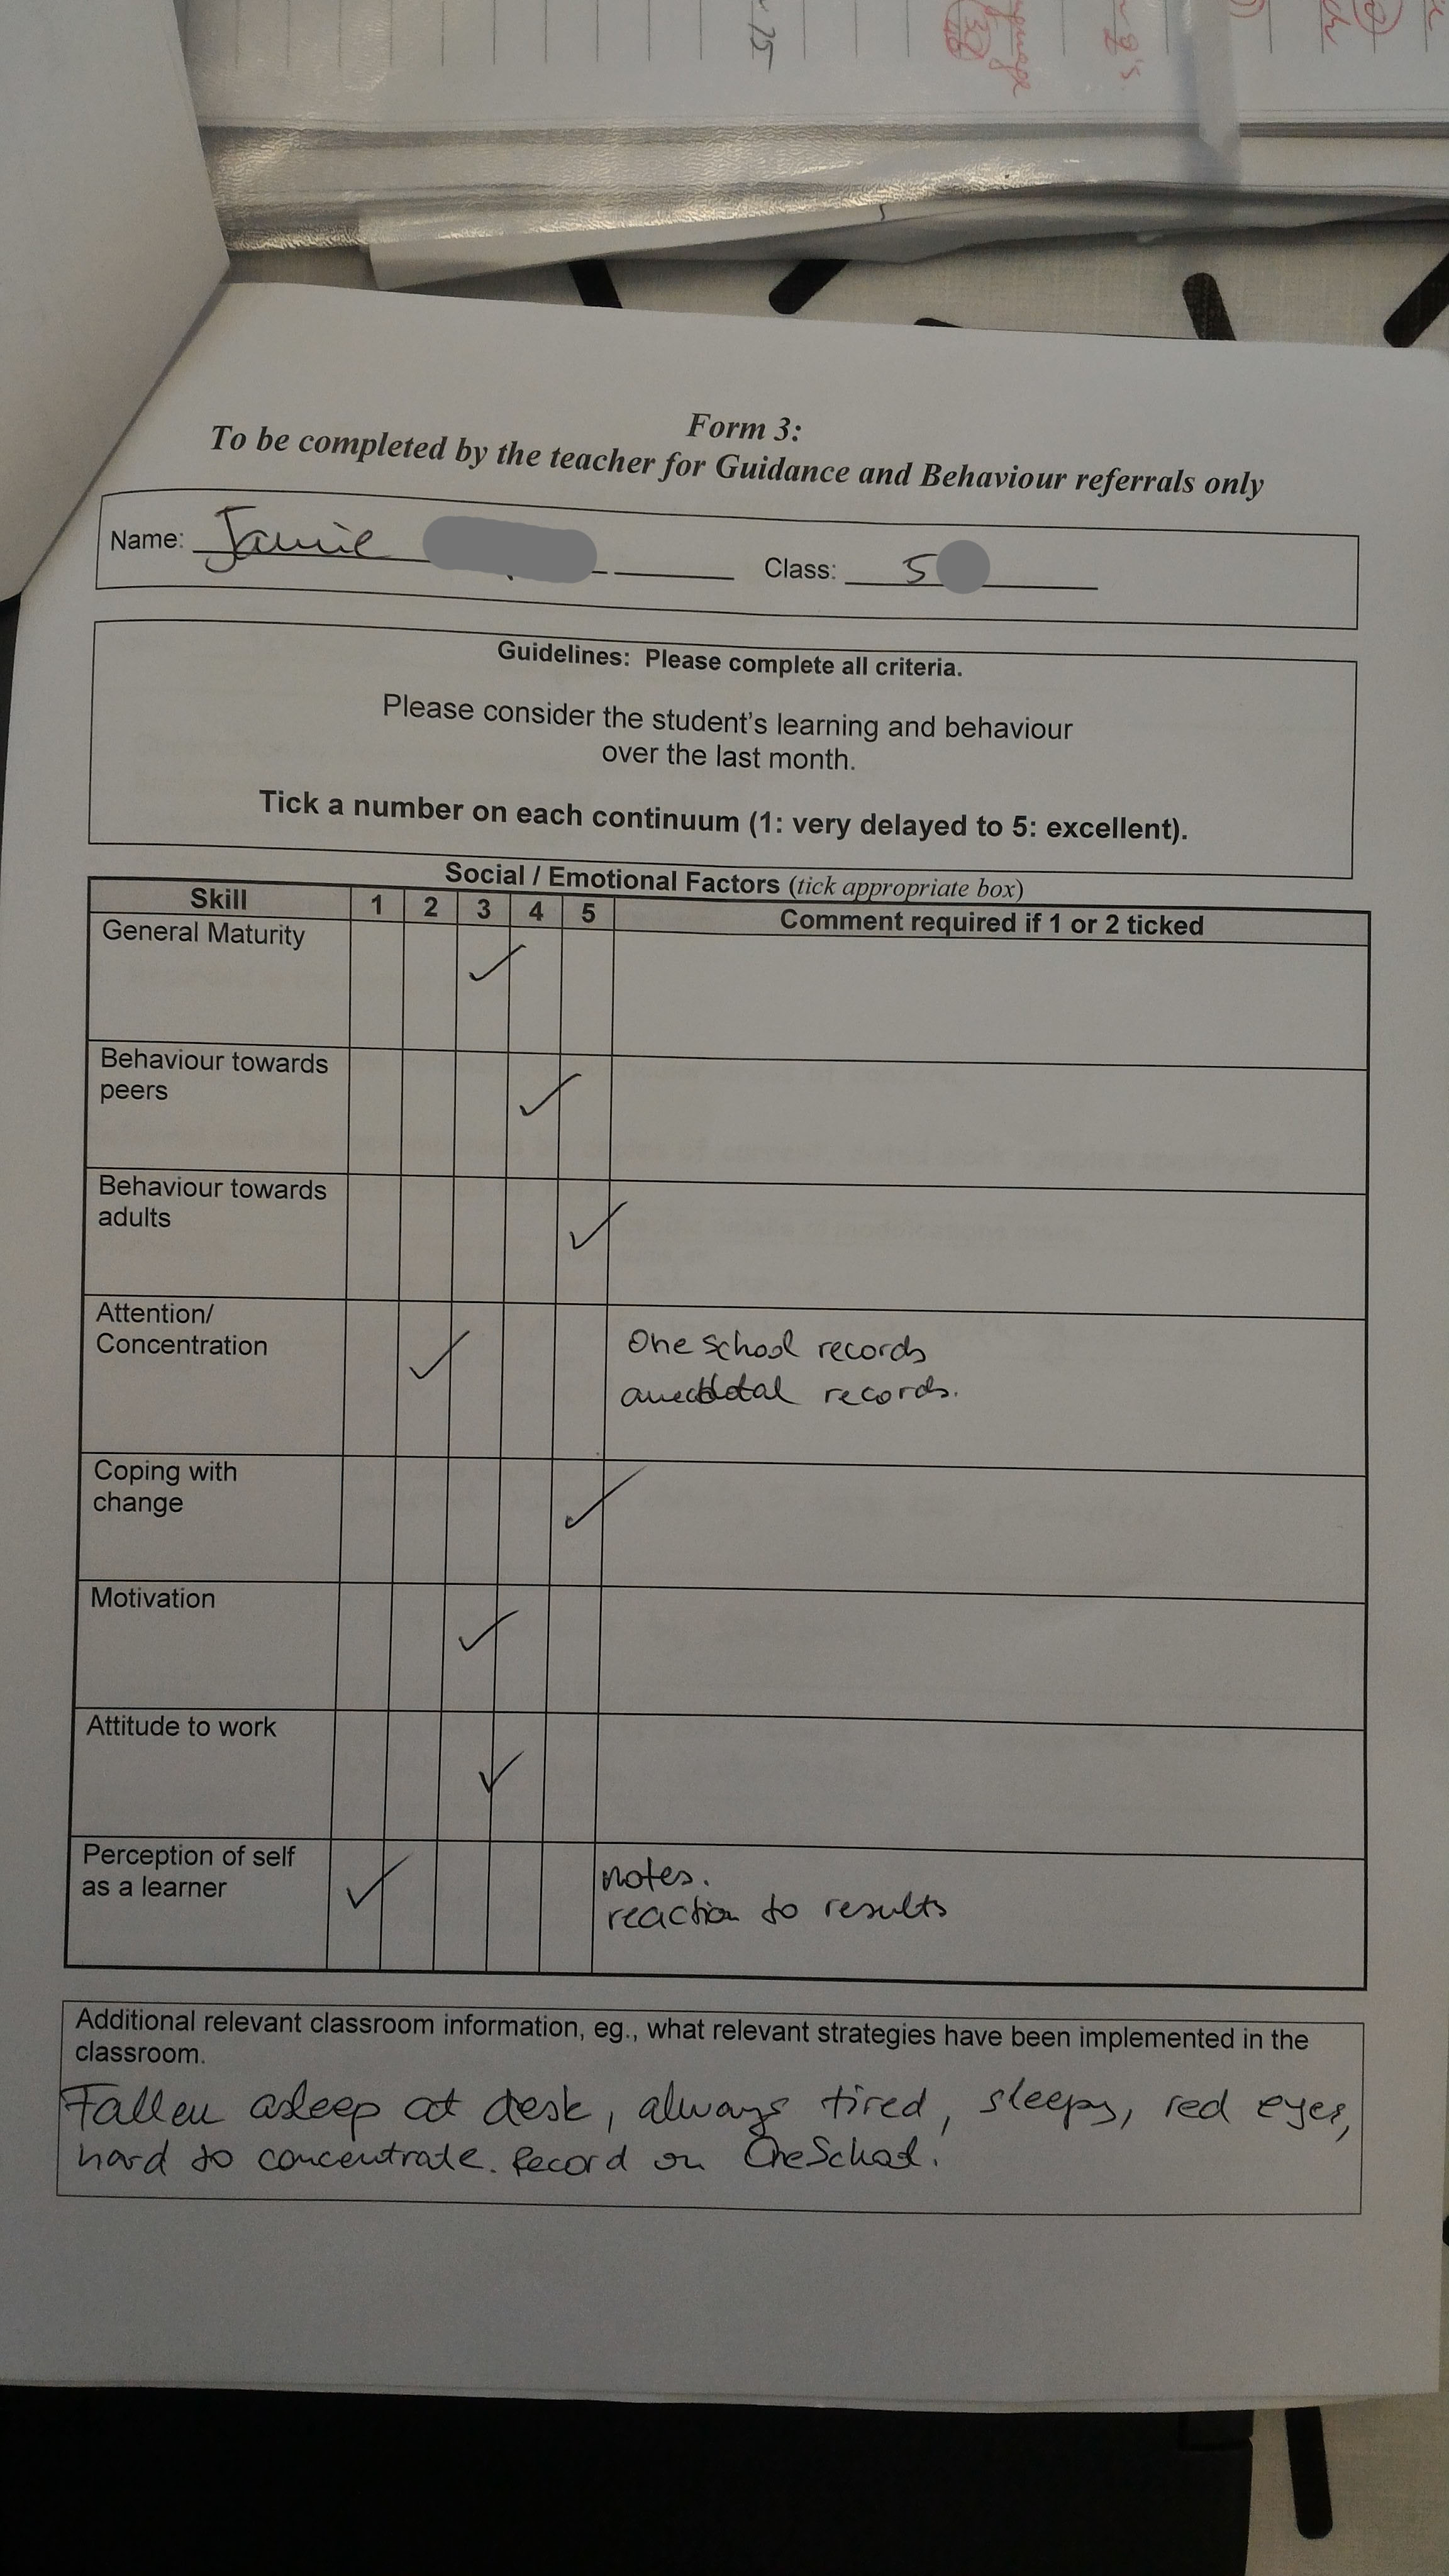 25
language
38
40
g's.
Form 3:
To be completed by the teacher for Guidance and Behaviour referrals only
Name: Jamie Class: 5
Guidelines: Please complete all criteria.
Please consider the student's learning and behaviour
over the last month.
Tick a number on each continuum (1: very delayed to 5: excellent).
Social / Emotional Factors (tick appropriate box)
Skill 1 2 3 4 5 Comment required if 1 or 2 ticked
General Maturity ✓
Behaviour towards
peers ✓
Behaviour towards
adults ✓
Attention/
Concentration ✓ One School records
anecdotal records.
Coping with
change ✓
Motivation ✓
Attitude to work ✓
Perception of self
as a learner ✓ notes.
reaction to results
Additional relevant classroom information, eg., what relevant strategies have been implemented in the
classroom.
Fallen asleep at desk, always tired, sleepy, red eyes,
hard to concentrate. Record on OneSchool.